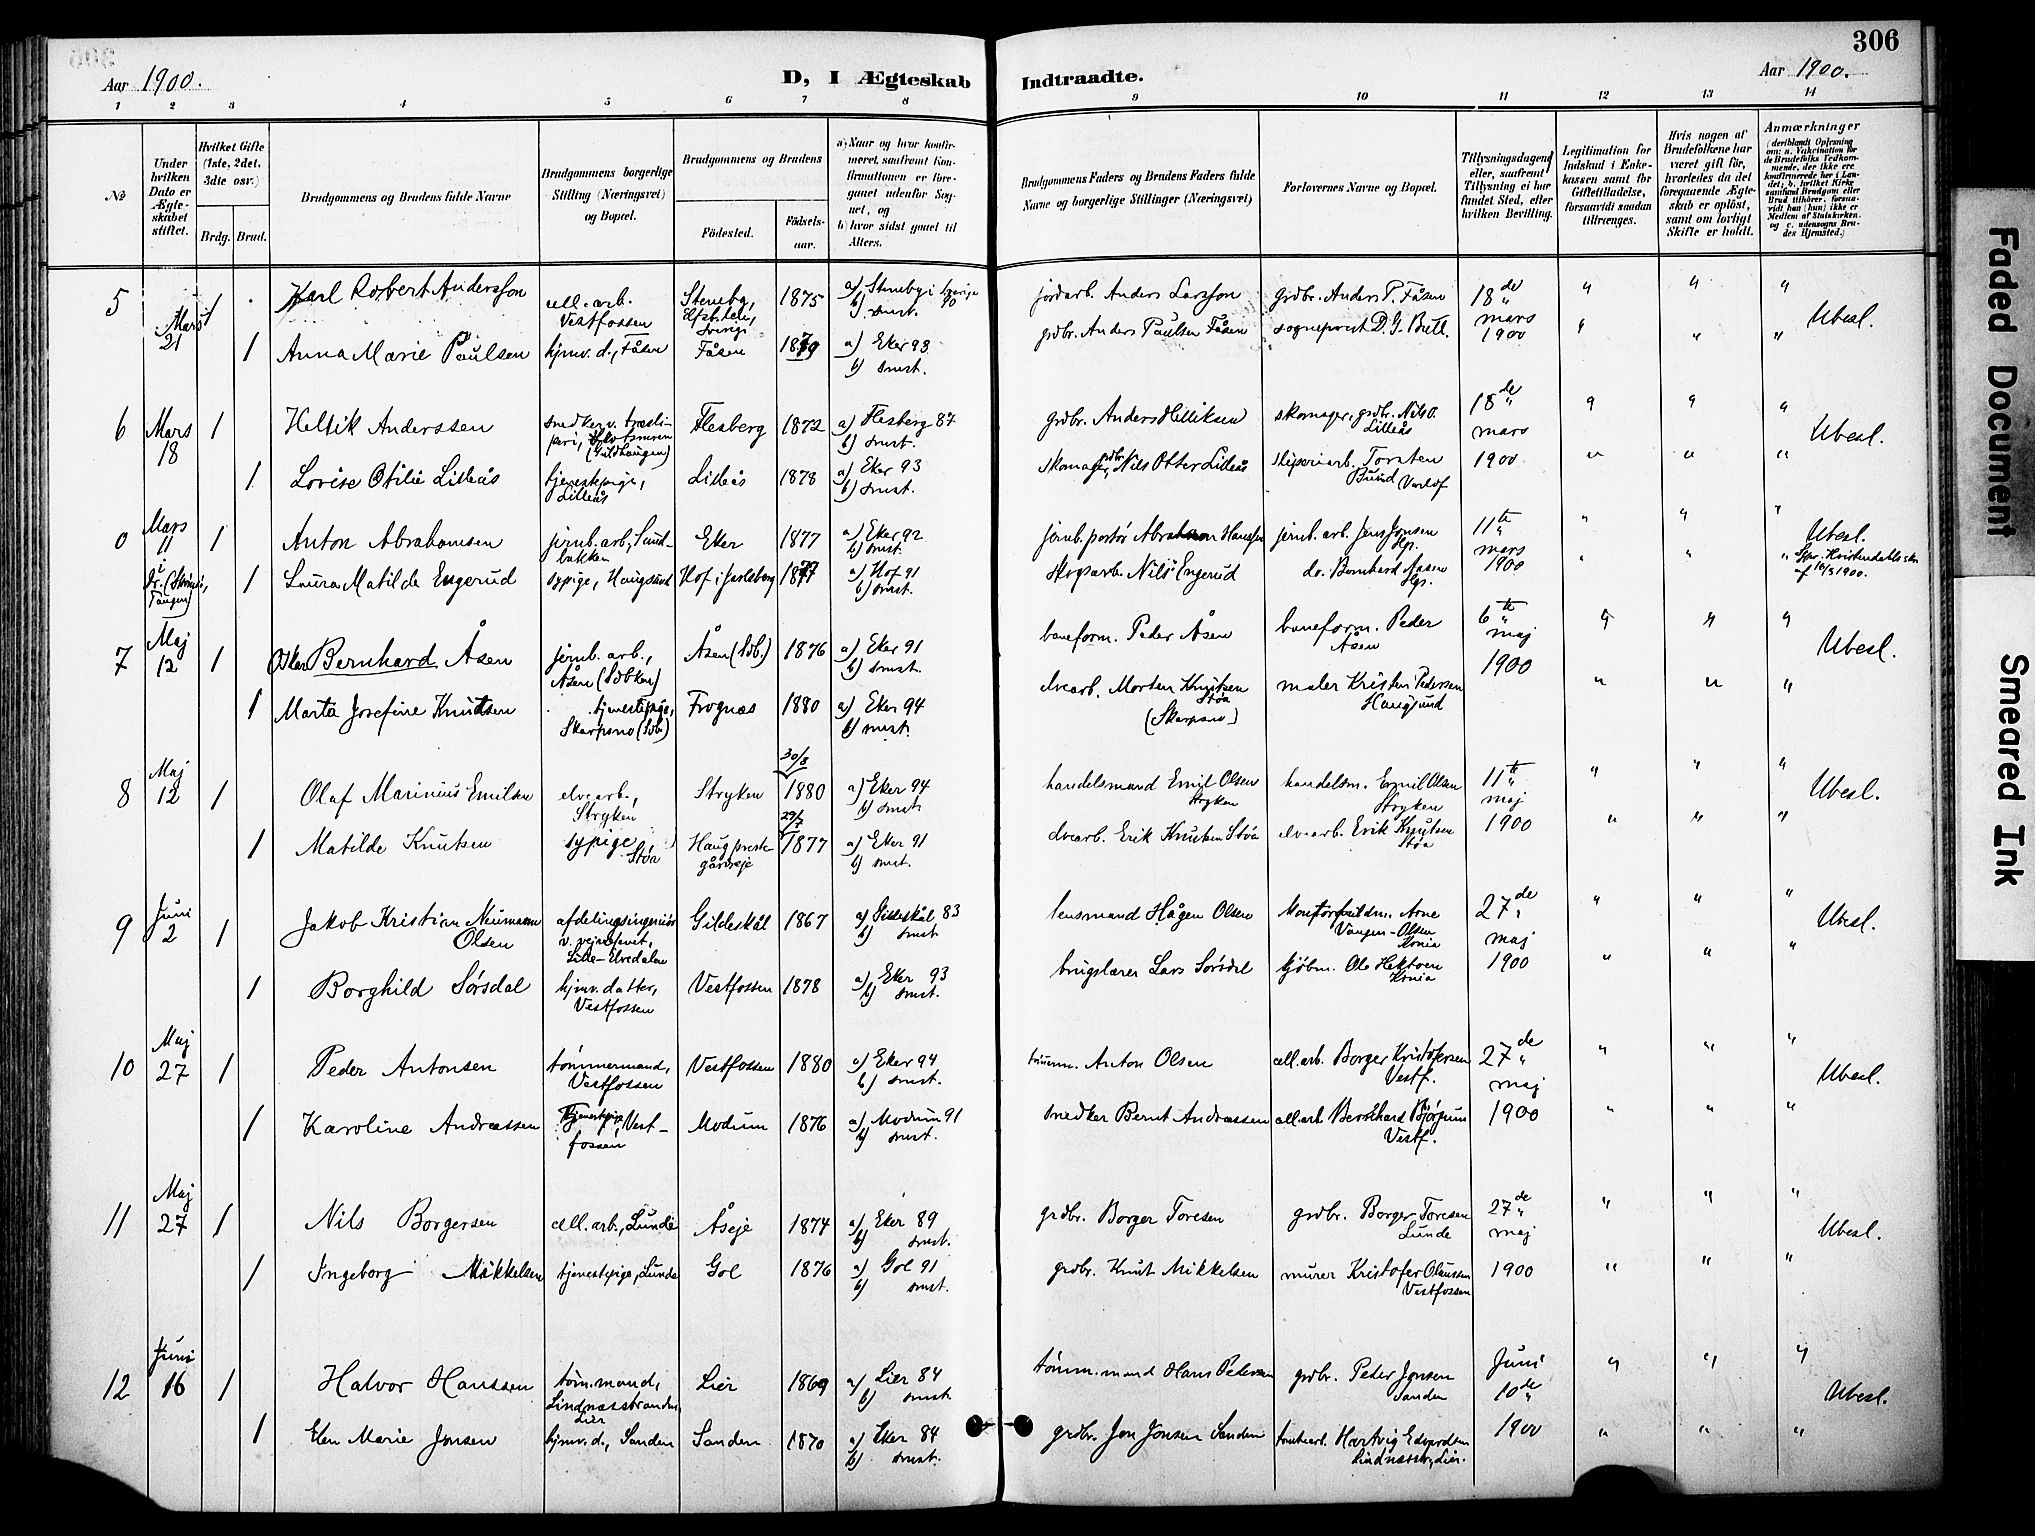 306
Aar 1900.
D, I Ægteskab Indtraadte.
Aar 1900.
1 2 3 4 5 6 7 8 9 10 11 12 13 14
№
Under hvilken Dato er Ægteskabet stiftet.
Hvilket Gifte (1ste, 2det, 3die osv.)
Brdg. Brud.
Brudgommens og Brudens fulde Navne
Brudgommens borgerlige Stilling (Næringsvei) og Bopæl.
Brudgommens og Brudens
Fødested.
Fødselsaar.
a) Naar og hvor konfirmeret, saafremt Konfirmationen er foregaaet udenfor Sognet, og
b) hvor sidst gaaet til Alters.
Brudgommens Faders og Brudens Faders fulde Navne og borgerlige Stillinger (Næringsvei)
Forlovernes Navne og Bopæl.
Tillysningsdagene eller, saafremt Tillysning ei har fundet Sted, efter hvilken Bevilling.
Legitimation for Indskud i Enkekassen samt for Giftetilladelse, forsaavidt saadan tiltrænges.
Hvis nogen af Brudefolkene har været gift før, hvorledes da det foregaaende Ægteskab er opløst, samt om lovligt Skifte er holdt.
Anmærkninger
(deriblandt Oplysning om: a. Vakcination for de Brudefolks Vedkommende, der ikke ere konfirmerede her i Landet; b. hvilket Kirkesamfund Brudgom eller Brud tilhører, forsaavidt han (hun) ikke er Medlem af Statskirken og c. udensogns Brudes Hjemsted.)
5 Mars 21 1 Karl Robert Andersson cell. arb. Vestfossen Steneby, Elfsb. län, Sverige 1875 a) Steneby i Sverige 90 b) smst. jordarb. Anders Larsson grdbr. Anders P. Fåsen 18de mars 1900 " " " Ubesl.
1 Anna Marie Paulsen hjmv. d., Fåsen Fåsen 1879 a) Eker 93 b) smst. grdbr. Anders Paulsen Fåsen sogneprest D. G. Bull. " " "
6 Mars 18 1 Hellik Anderssen snedker v. træsliperi, Flesberg 1872 a) Flesberg 87 b) smst. grdbr. Anders Helliksen skomager, grdbr. Nils O. Lilleås 18de mars 1900 " " " Ubesl.
1 Lovise Otilie Lilleås tjenestepige, Lilleås Lilleås 1878 a) Eker 93 b) smst. skomager, grdbr. Nils Otter Lilleås sliperiarb. Torsten " " "
0 Mars 11 i Dr. (Strømsø, Tangen) 1 Anton Abrahamsen jernb. arb., Sundbakken Eker 1877 a) Eker 92 b) smst. jernb. portør Abraham Hansen jernb. arb. Jens Jonsen Hgs. 11te mars 1900 " " " Ubesl.
1 Laura Matilde Engerud sypige, Haugsund Hof i Jarlsberg 1877 a) Hof 91 b) smst. Nils Engerud do. Bernhard Aasen Hgs. " " "
7 Maj 12 1 Oskar Bernhard Åsen jernb. arb., Åsen (Sdbken) Åsen (Sdb.) 1876 a) Eker 91 b) smst. baneform. Peder Åsen baneform. Peder Åsen 6te maj 1900 " " " Ubesl.
1 Marta Josefine Knutsen tjenestepige, Skarpsno (Sdb) Frognæs 1880 a) Eker 94 b) smst. elvearb. Morten Knutsen Støa (Skarpsno) maler Kristen Pedersen Haugsund " " "
8 Maj 12 1 Olaf Marinius Emilsen elvearb., Stryken Stryken 30/8 1880 a) Eker 94 b) smst. handelsmand Emil Olsen Stryken handelsm. Emil Olsen Stryken 11te maj 1900 " " " Ubesl.
1 Matilde Knutsen sypige Støa Haug prestegårdseje 29/7 1877 a) Eker 91 b) smst. elvearb. Erik Knutsen Støa elvearb. Erik Knutsen Støa " " "
9 Juni 2 1 Jakob Kristian Neumann Olsen afdelingsingeniør v. vejvæsenet, Lille-Elvedalen Gildeskål 1867 a) Gildeskål 83 b) smst. lensmand Hågen Olsen Arne Vangen-Olsen Kr.nia 27de maj 1900 " " " Ubesl.
1 Borghild Sørsdal hjmv. datter, Vestfossen Vestfossen 1878 a) Eker 93 b) smst. brugslærer Lars Sørsdal kjøbm. Ole Hektoen Kr.nia " " "
10 Maj 27 1 Peder Antonsen tømmermand, Vestfossen Vestfossen 1880 a) Eker 94 b) smst. tømm. Anton Olsen cell. arb. Borger Kristofersen Vestf. 27de maj 1900 " " " Ubesl.
1 Karoline Andreassen Tjenestepige, Vestfossen Modum 1876 a) Modum 91 b) smst. snedker Bernt Andreassen cell. arb. Bernhard Bjørgum Vestf. " " "
11 Maj 27 1 Nils Borgersen cell. arb., Lunde Åseje 1874 a) Eker 89 b) smst. grdbr. Borger Toresen grdbr. Borger Toresen Lunde 27de maj 1900 " " " Ubesl.
1 Ingeborg Mikkelsen tjenestepige, Lunde Gol 1876 a) Gol 91 b) smst. grdbr. Knut Mikkelsen murer Kristofer Olaussen Vestfossen " " "
12 Juni 16 1 Halvor Hanssen tøm. mand, Lindnæsstranden, Lier Lier 1869 a) Lier 84 b) smst. tømm. mand Hans Pedersen grdbr. Peder Jonsen Sanden Juni 10de 1900 " " " Ubesl.
1 Elen Marie Jonsen hjmv. d., Sanden Sanden 1870 a) Eker 84 b) smst. grdbr. Jon Jonsen Sanden Hartvig Edvardsen Lindnæsstr., Lier. " " "
Faded Document
Smeared Ink